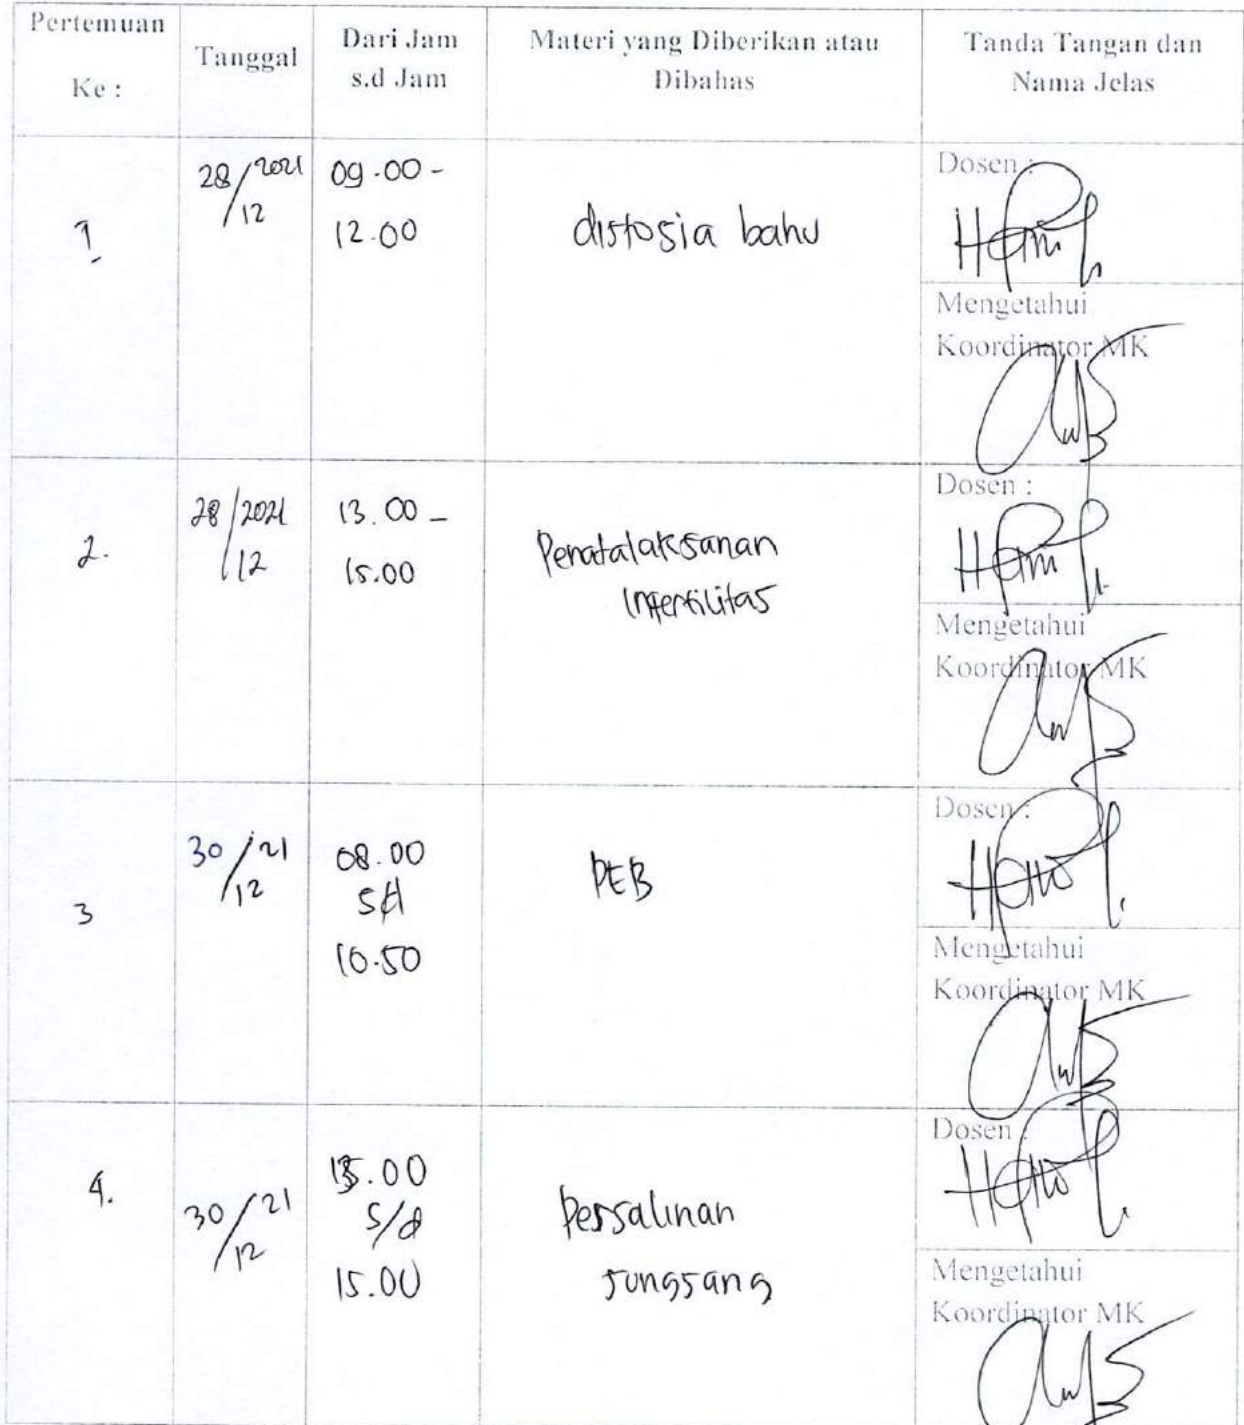 Pertemuan
Ke :
Tanggal
Dari Jam
s.d Jam
Materi yang Diberikan atau
Dibahas
Tanda Tangan dan
Nama Jelas
1
28/12 2021
09.00 -
12.00
distosia bahu
Dosen :
Mengetahui
Koordinator MK
2.
28/12 2021
13.00 -
15.00
Penatalaksanan
infertilitas
Dosen :
Mengetahui
Koordinator MK
3
30/12 21
08.00
s/d
10.50
PEB
Dosen :
Mengetahui
Koordinator MK
4.
30/12 21
s/d
15.00
Persalinan
sungsang
Dosen :
Mengetahui
Koordinator MK